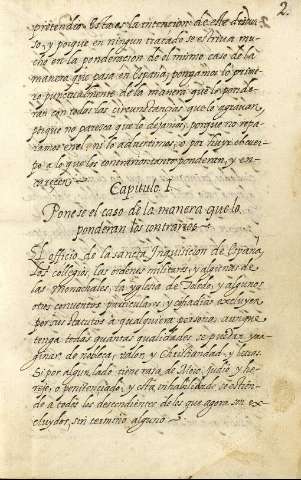 2.
pretendia. Esta es la intencion de este discur-
so, y porque en ningun tratado se estriua mu-
cho en la ponderacion de el mismo caso de la
manera que pasa en España, pongamoslo prime-
ro puntualmente de la manera que lo ponde-
ran con todas las circunstancias que lo agrauan,
porque no paresca que lo dejamos, porque no repa-
ramos en el, ni lo aduertimos, o por huyr el cuer-
po a lo que los contrarios tanto ponderan, y en-
carecen.
Capitulo. I.
Ponese el caso de la manera que lo
ponderan los contrarios.
El officio de la sancta Inquisicion de España,
los collegios, las ordenes militares, y algunas de
las Monachales, la yglesia de Toledo, y algunos
otros conuentos particulares, y cofradias excluyen
por sus Estatutos à qualquiera persona, aunque
tenga todas quantas qualidades se puedan yma-
ginar de nobleza, valor, y Christiandad, y letras.
Si por algun lado tiene raza de Moro, judio, y he-
reje, o penitenciado, y esta inhabilidad se estien-
de a todos los descendientes de los que agora son ex-
cluydos, sin termino alguno.